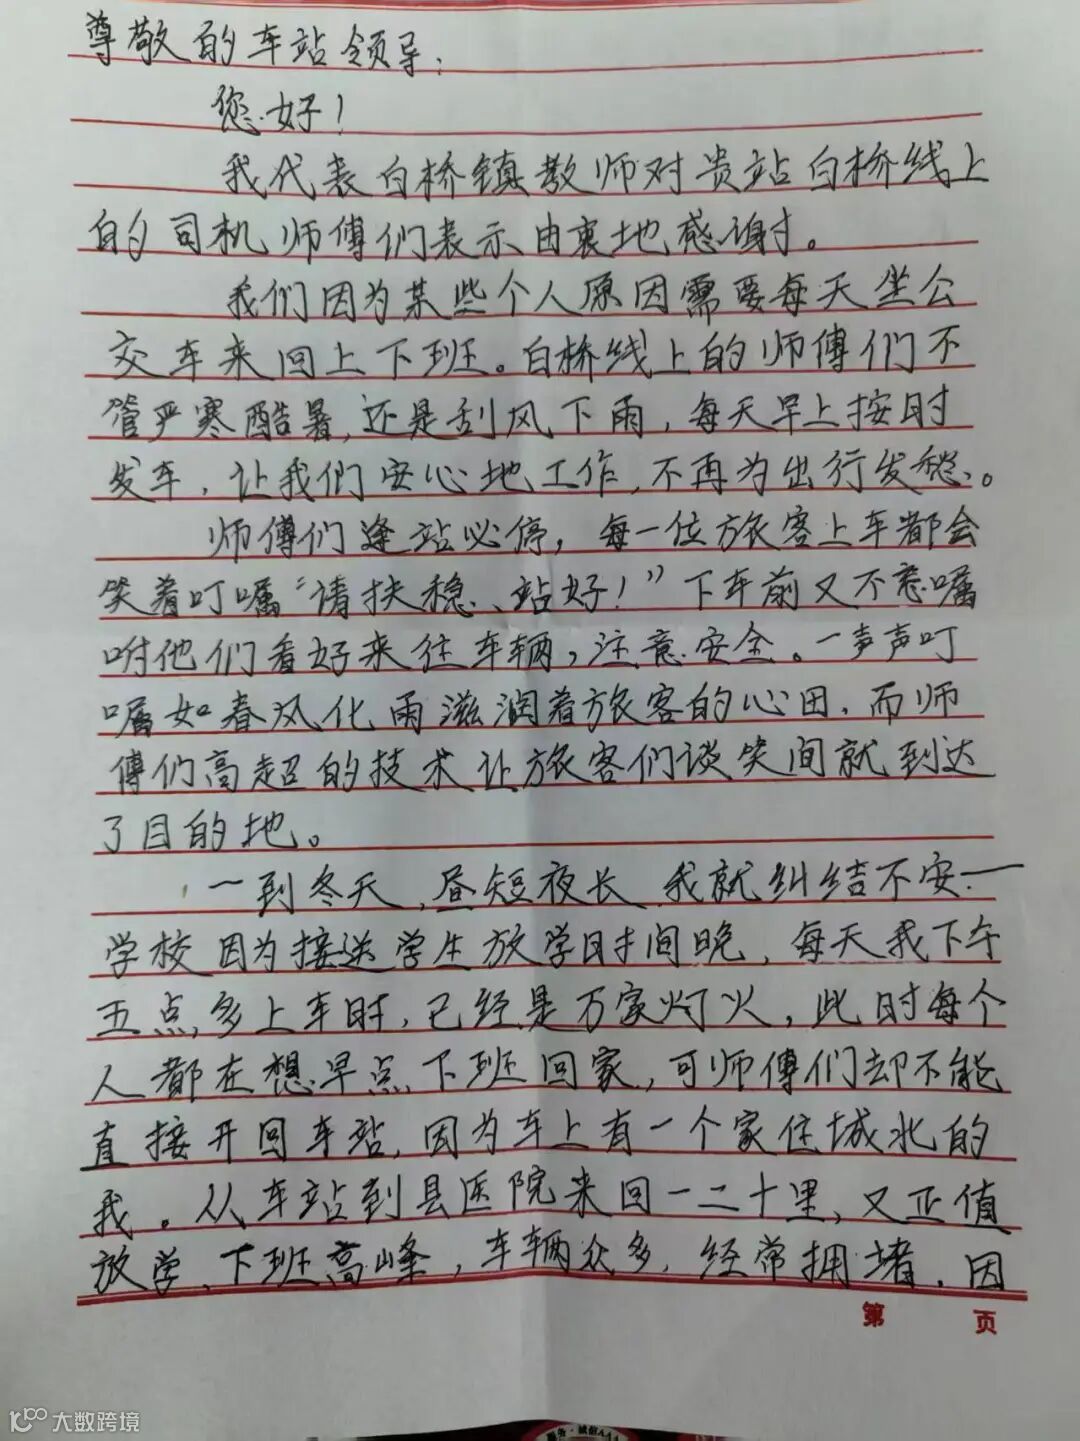 尊敬的车站领导：
您好！
我代表白桥镇教师对贵站白桥线上
的司机师傅们表示由衷地感谢。
我们因为某些个人原因需要每天坐公
交车来回上下班。白桥线上的师傅们不
管严寒酷暑，还是刮风下雨，每天早上按时
发车，让我们安心地工作，不再为出行发愁。
师傅们逢站必停，每一位旅客上车都会
笑着叮嘱“请扶稳、站好！”下车前又不忘嘱
咐他们看好来往车辆，注意安全。一声声叮
嘱如春风化雨滋润着旅客的心田，而师
傅们高超的技术让旅客们谈笑间就到达
了目的地。
一到冬天，昼短夜长，我就纠结不安—
学校因为接送学生放学时间晚，每天我下午
五点多上车时，已经是万家灯火，此时每个
人都在想早点下班回家，可师傅们却不能
直接开回车站，因为车上有一个家住城北的
我。从车站到县医院来回一二十里，又正值
放学、下班高峰，车辆众多，经常拥堵，因
第 页
大数跨境
服务·诚信AAA